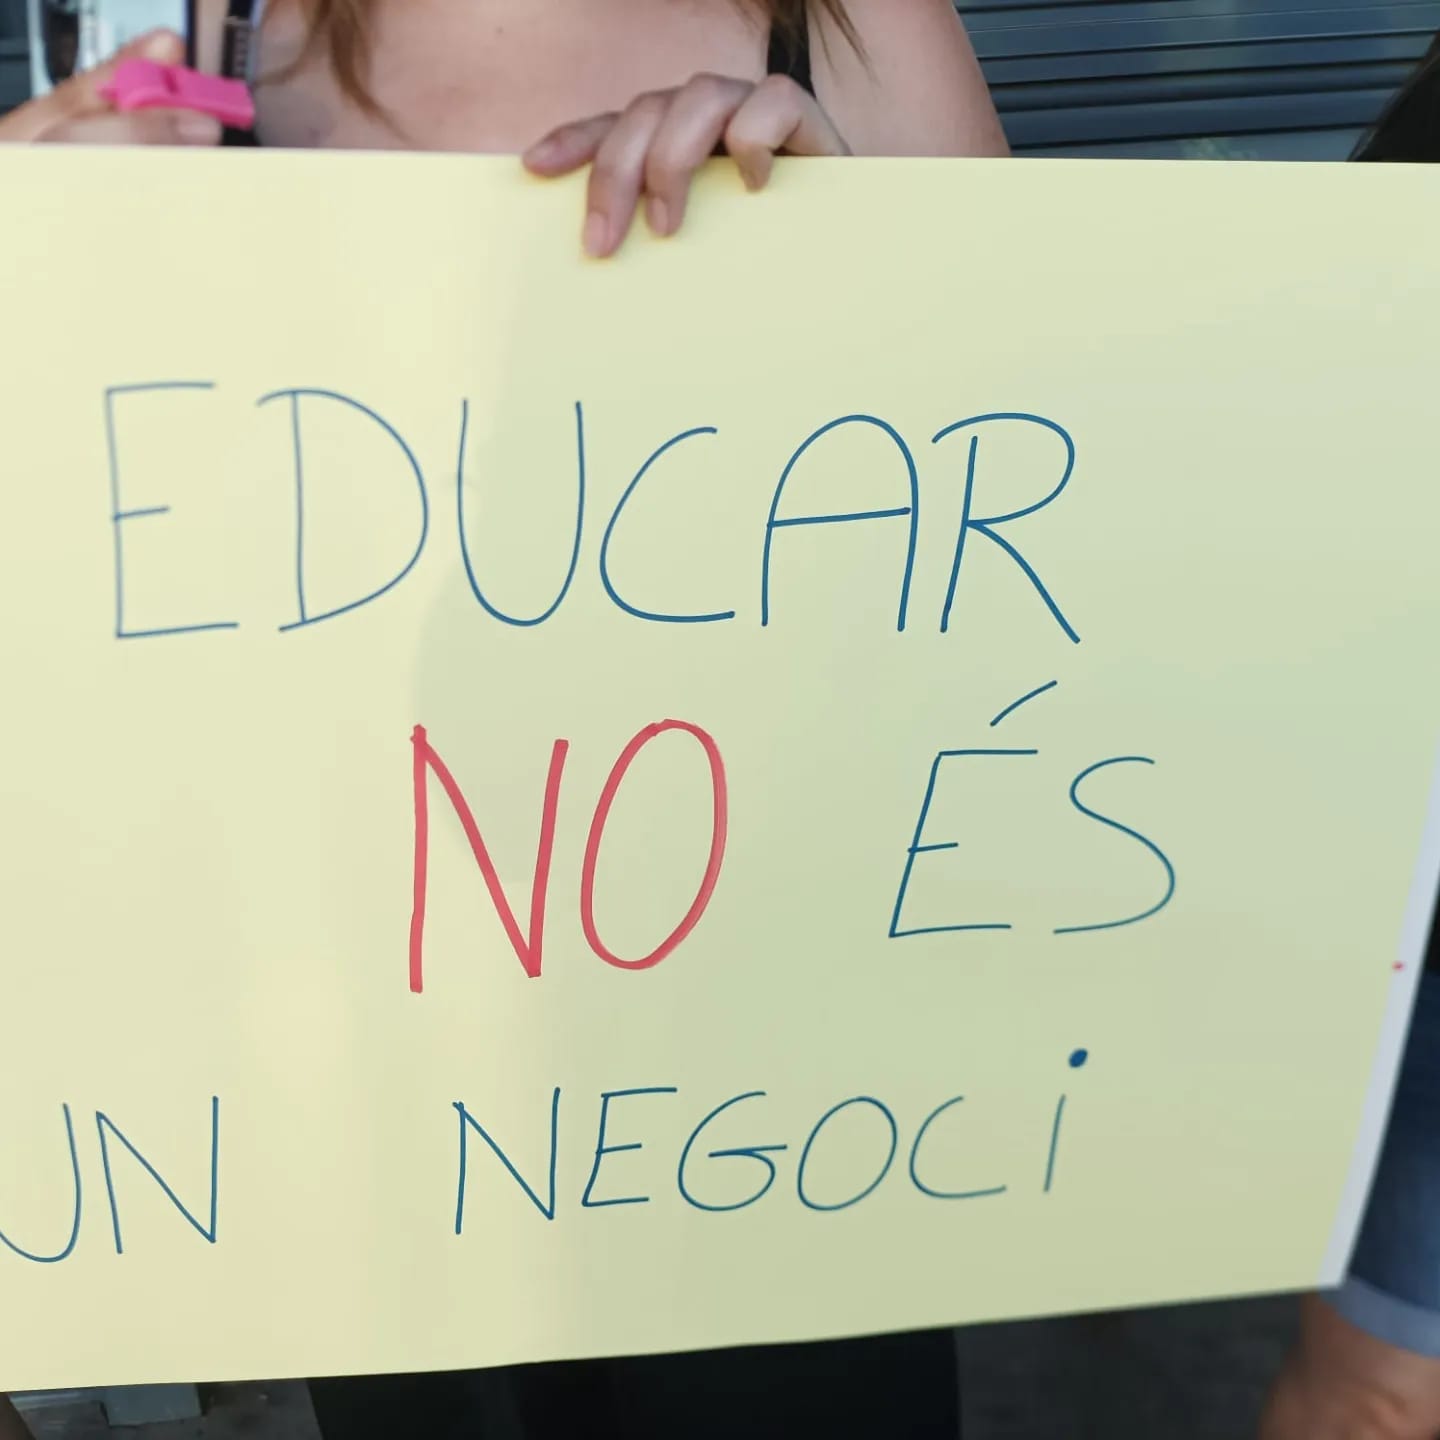 EDUCAR
NO ÉS
UN NEGOCi